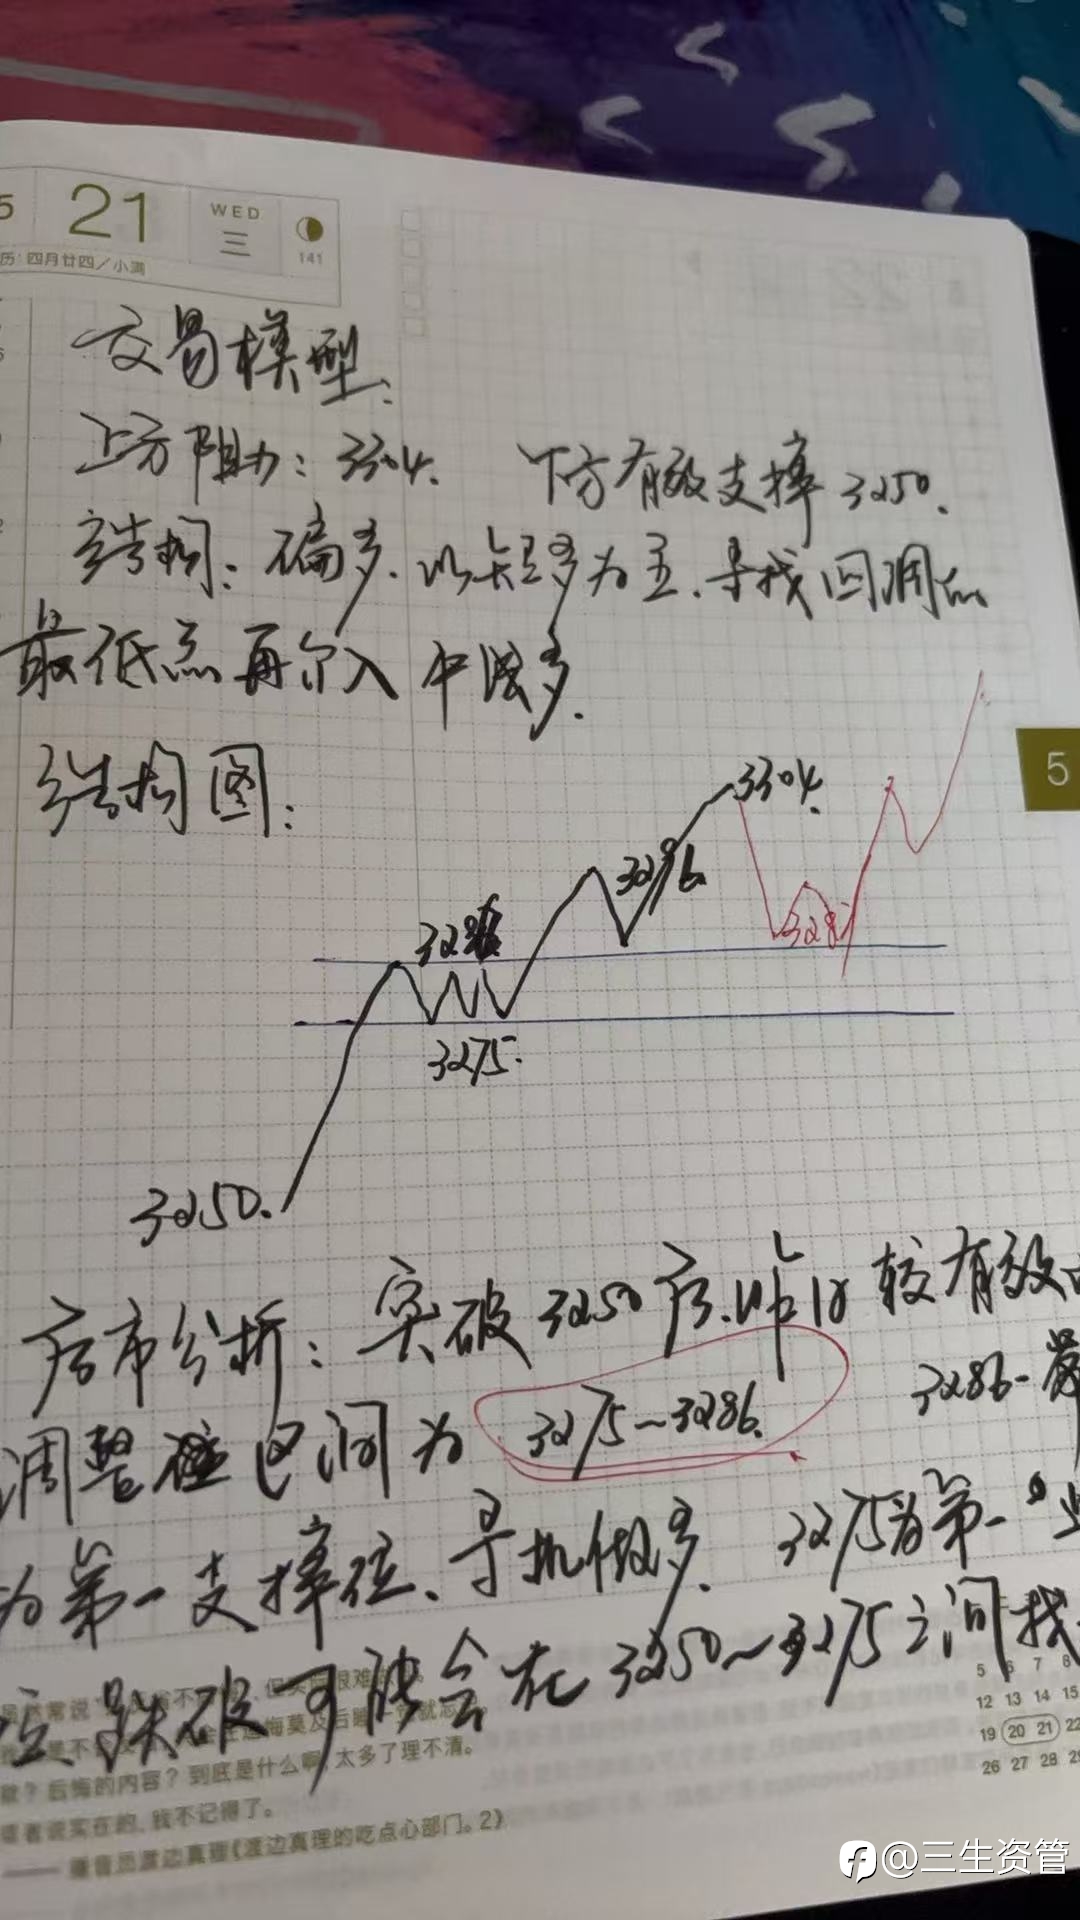 5 21 WED 三 141
历：四月廿四／小满
交易模型：
上方阻力：3304. 下方有效支撑3250.
结构：偏多.以短多为主.寻找回调的
最低点再介入中线多.
结构图：
5
3304.
3296.
328
3275.
3250.
后市分析：突破3250后.昨日较有效的
调整 区间为 3275~3286. 3286-
为第一支撑位、寻机做多. 3275为第一
位.跌破可能会在3250~3275之间找
5 6 7 8
12 13 14 15
但实 很难
常说
19 20 21 22
悔莫及后
就忘
歉？后悔的内容？到底是什么啊，太多了理不清。
26 27 28 29
说实在的，我不记得了。
—— 播音员渡边真理《渡边真理的吃点心部门。2》
@三生资管